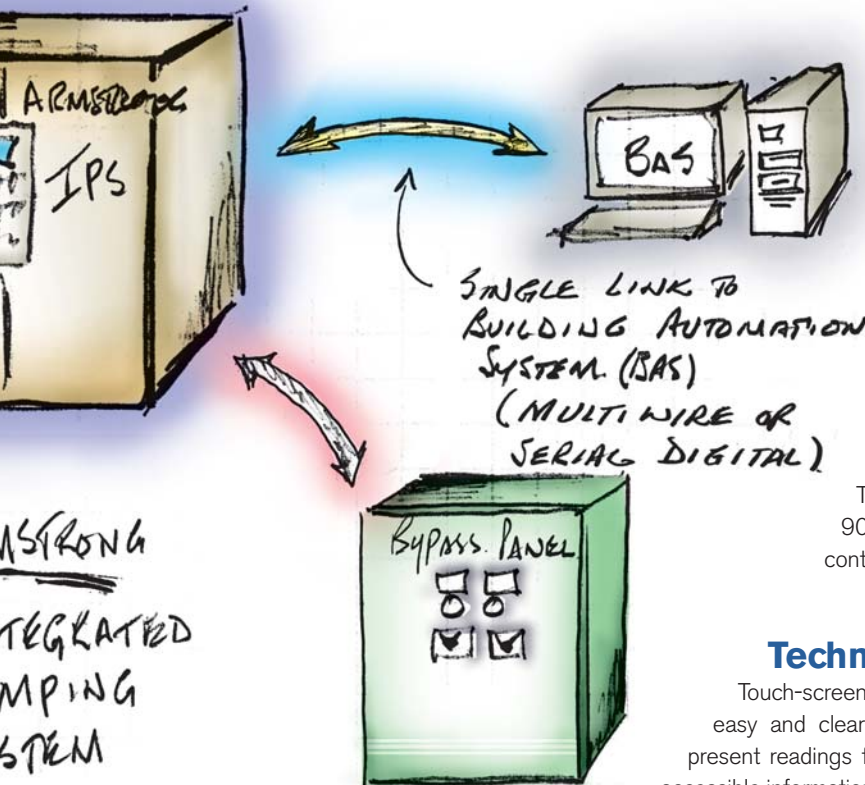 ARMSTRONG
IPS
BAS
SINGLE LINK TO
BUILDING AUTOMATION
SYSTEM (BAS)
(MULTIWIRE OR
SERIAL DIGITAL)
BYPASS PANEL
MSTRONG
TEGRATED
MPING
STEM
T
90
cont
Techn
Touch-screen
easy and clear
present readings f
accessible information